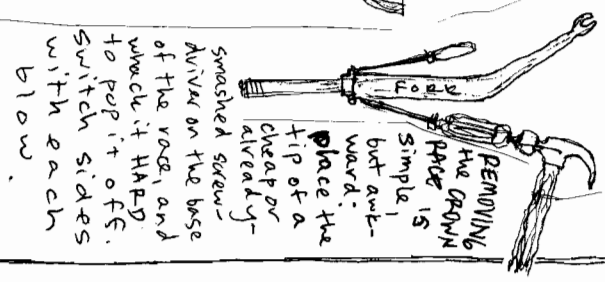 FORK
REMOVING
the CROWN
RACE is
simple,
but awk-
ward:
place the
tip of a
cheap or
already-
smashed screw-
driver on the base
of the race, and
whack it HARD
to pop it off.
Switch sides
with each
blow.